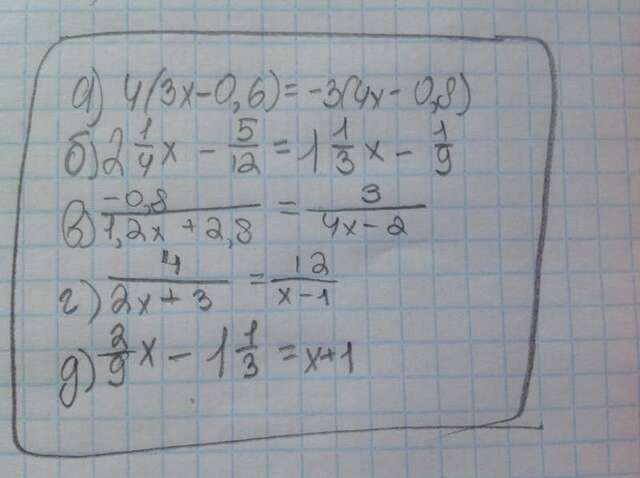 а) 4(3x-0,6)=-3(4x-0,8)
б) 2 1/4 x - 5/12 = 1 1/3 x - 1/9
в) -0,8/1,2x+2,8 = 3/4x-2
г) 4/2x+3 = 12/x-1
д) 2/9 x - 1 1/3 = x+1